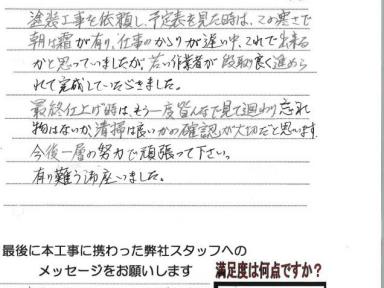 塗装工事を依頼し、予定表を見た時は、この寒さで
朝は霜が有り、仕事のかゝりが遅い中、これで出来る
かと思っていましたが、若い作業者が段取り良く進めら
れて完成していただきました。
最終仕上げ時は、もう一度皆んなで見て廻わり忘れ
物はないか、清掃は良いかの確認が大切だと思います
今後一層の努力で頑張って下さい。
有り難う御座いました。
最後に本工事に携わった弊社スタッフへの
メッセージをお願いします
満足度は何点ですか?